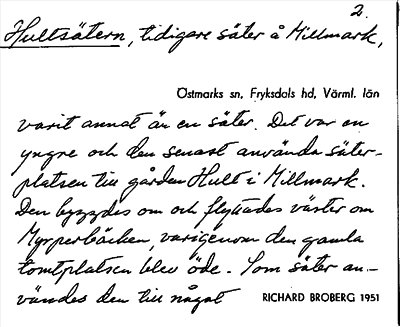 2.
Hultsätern, tidigare säter å Millmark,
Östmarks sn, Fryksdols hd, Värml. län
varit annat än en säter. Det var en
yngre och den senast använda säter-
platsen till gården Hult i Millmark.
Den byggdes om och flyttades väster om
Myrperbäcken, varigenom den gamla
tomtplatsen blev öde. - Som säter an-
vändes den till något RICHARD BROBERG 1951